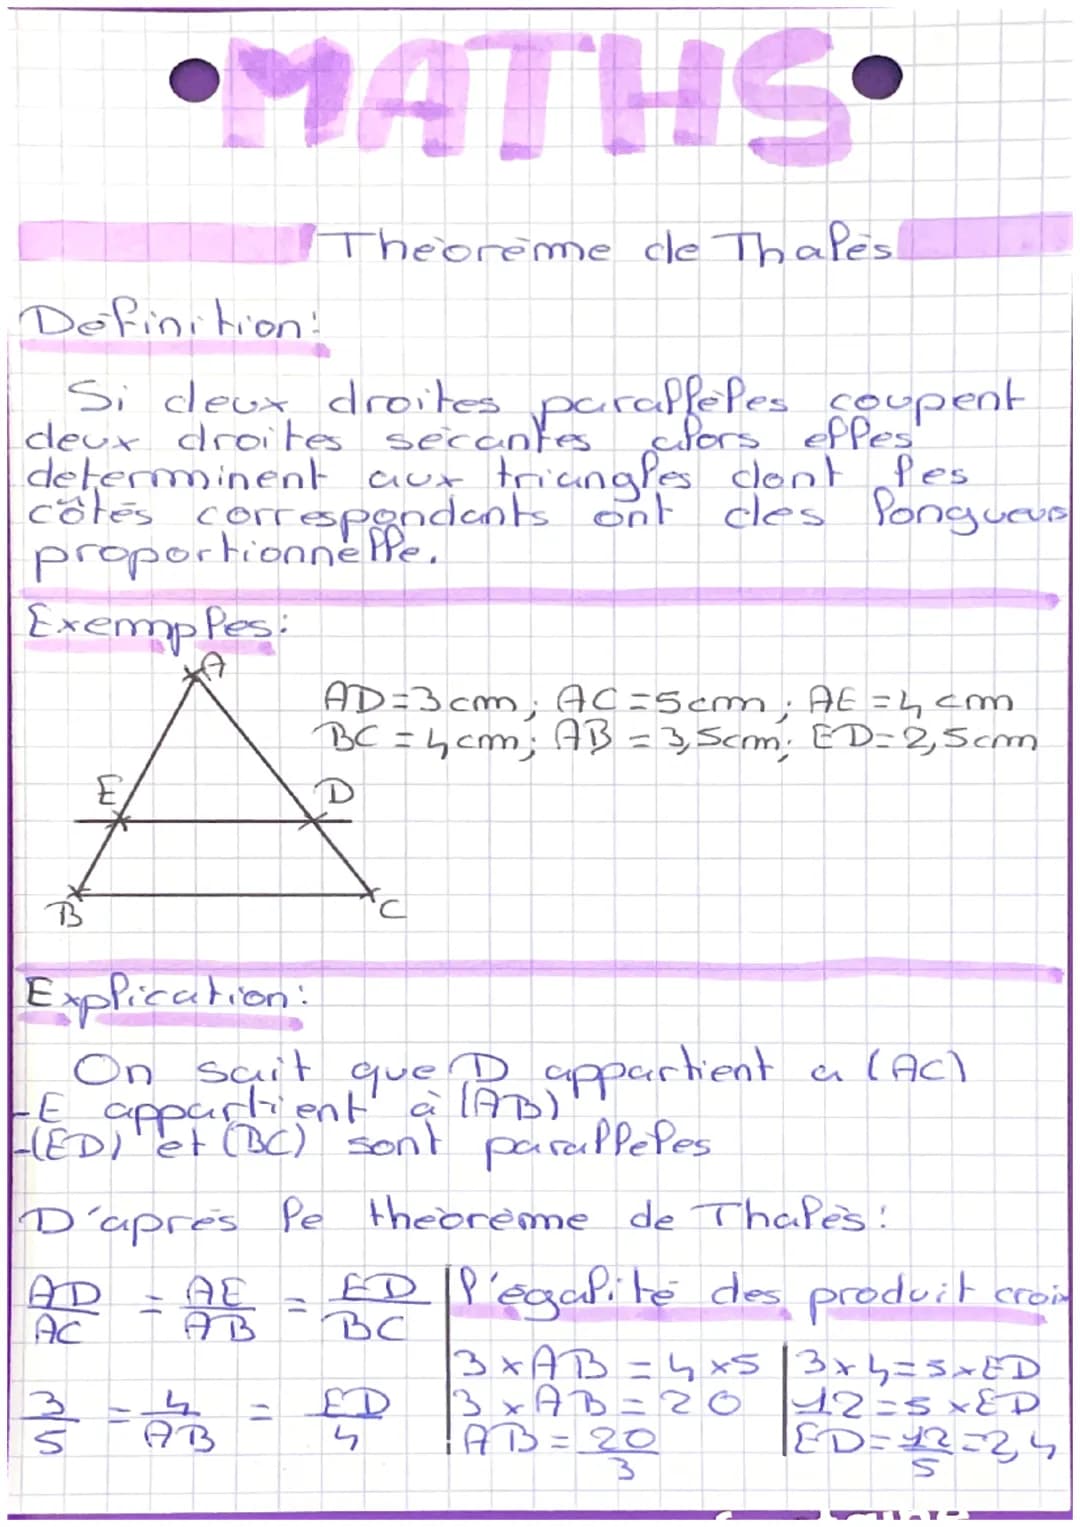 • MATHS •
Théorème de Thalès
Définition:
Si deux droites parallèles coupent
deux droites sécantes alors elles
determinent aux triangles dont les
côtés correspondants ont des longueurs
proportionnelle.
Exemmples:
A
AD=3cm; AC=5cm; AE=4cm
BC=4cm; AB=3,5cm; ED=2,5cm
E D
B C
Explication:
On sait que D appartient a (AC)
-E appartient à (AB)
-(ED) et (BC) sont parallèles
D'aprés le théorème de Thalès:
AD/AC = AE/AB = ED/BC
l'égalité des produit croi
3/5 = 4/AB = ED/4
3×AB=4×5
3×AB=20
AB=20/3
3×4=5×ED
12=5×ED
ED=12/5=2,4